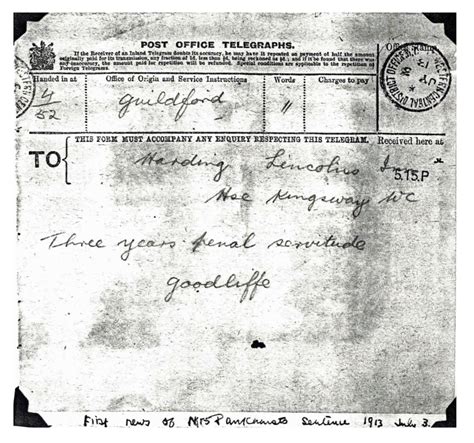 POST OFFICE TELEGRAPHS.
If the Receiver of an Inland Telegram doubts its accuracy, he may have it repeated on payment of half the amount
originally paid for its transmission, any fraction of 1d. less than ½d. being reckoned as ½d.; and if it be found that there was
any inaccuracy, the amount paid for repetition will be refunded. Special conditions are applicable to the repetition of
Foreign Telegrams.
Handed in at
Office of Origin and Service Instructions
Words
Charges to pay
4/52
Guildford
"
WESTERN CENTRAL DISTRICT OFFICE
THIS FORM MUST ACCOMPANY ANY ENQUIRY RESPECTING THIS TELEGRAM.
Received here at
TO { Harding Lincolns
5.15.P
Hse Kingsway WC
Three years penal servitude
Goodliffe
First news of Mrs Pankhursts Sentence 1913